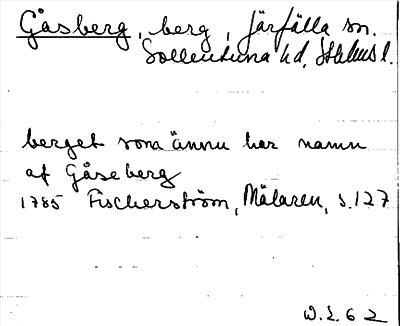 Gåsberg, berg, Järfälla sn.
Sollentuna hd, Sthlms l.
berget som ännu har namn
af Gåseberg
1785 Fischerström, Mälaren, s.127
W.L. 62